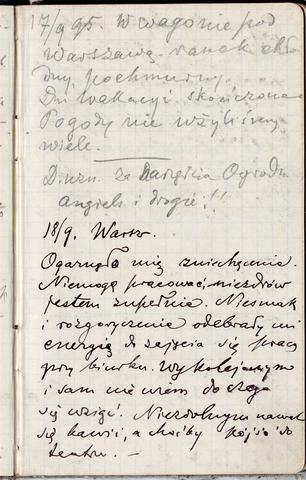 17/9 95. W wagonie pod
Warszawą. ranek chło
dny, pochmurny.
Dni wakacyi skończone
Pogody nie użyliśmy
wiele.
za Ogrodu
Angiels. i drogie!!
18/9. Warsz.
Ogarnęło mię zniechęcenie.
Niemogę pracować, niezdrów
jestem zupełnie. Niesmak
i rozgoryczenie odebrały mi
energię do zajęcia się pracą
przy biurku. Wykolejonym
i sam nie wiem do czego
się wziąć. Niezdolnym nawet
się bawić, a choćby pójść do
teatru. —